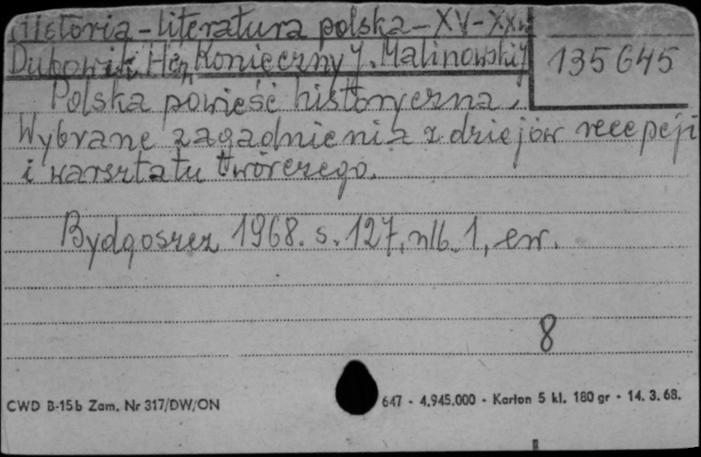 Historia - literatura polska - XV-XXw
Dubowik Hen, Konieczny J. Malinowski J
135645
Polska powieść historyczna.
Wybrane zagadnienia z dziejów recepcji
i warsztatu twórczego.
Bydgoszcz 1968. s. 127, nlb. 1, err.
8
CWD B-15b Zam. Nr 317/DW/ON
647 - 4.945.000 - Karton 5 kl. 180 gr - 14. 3. 68.